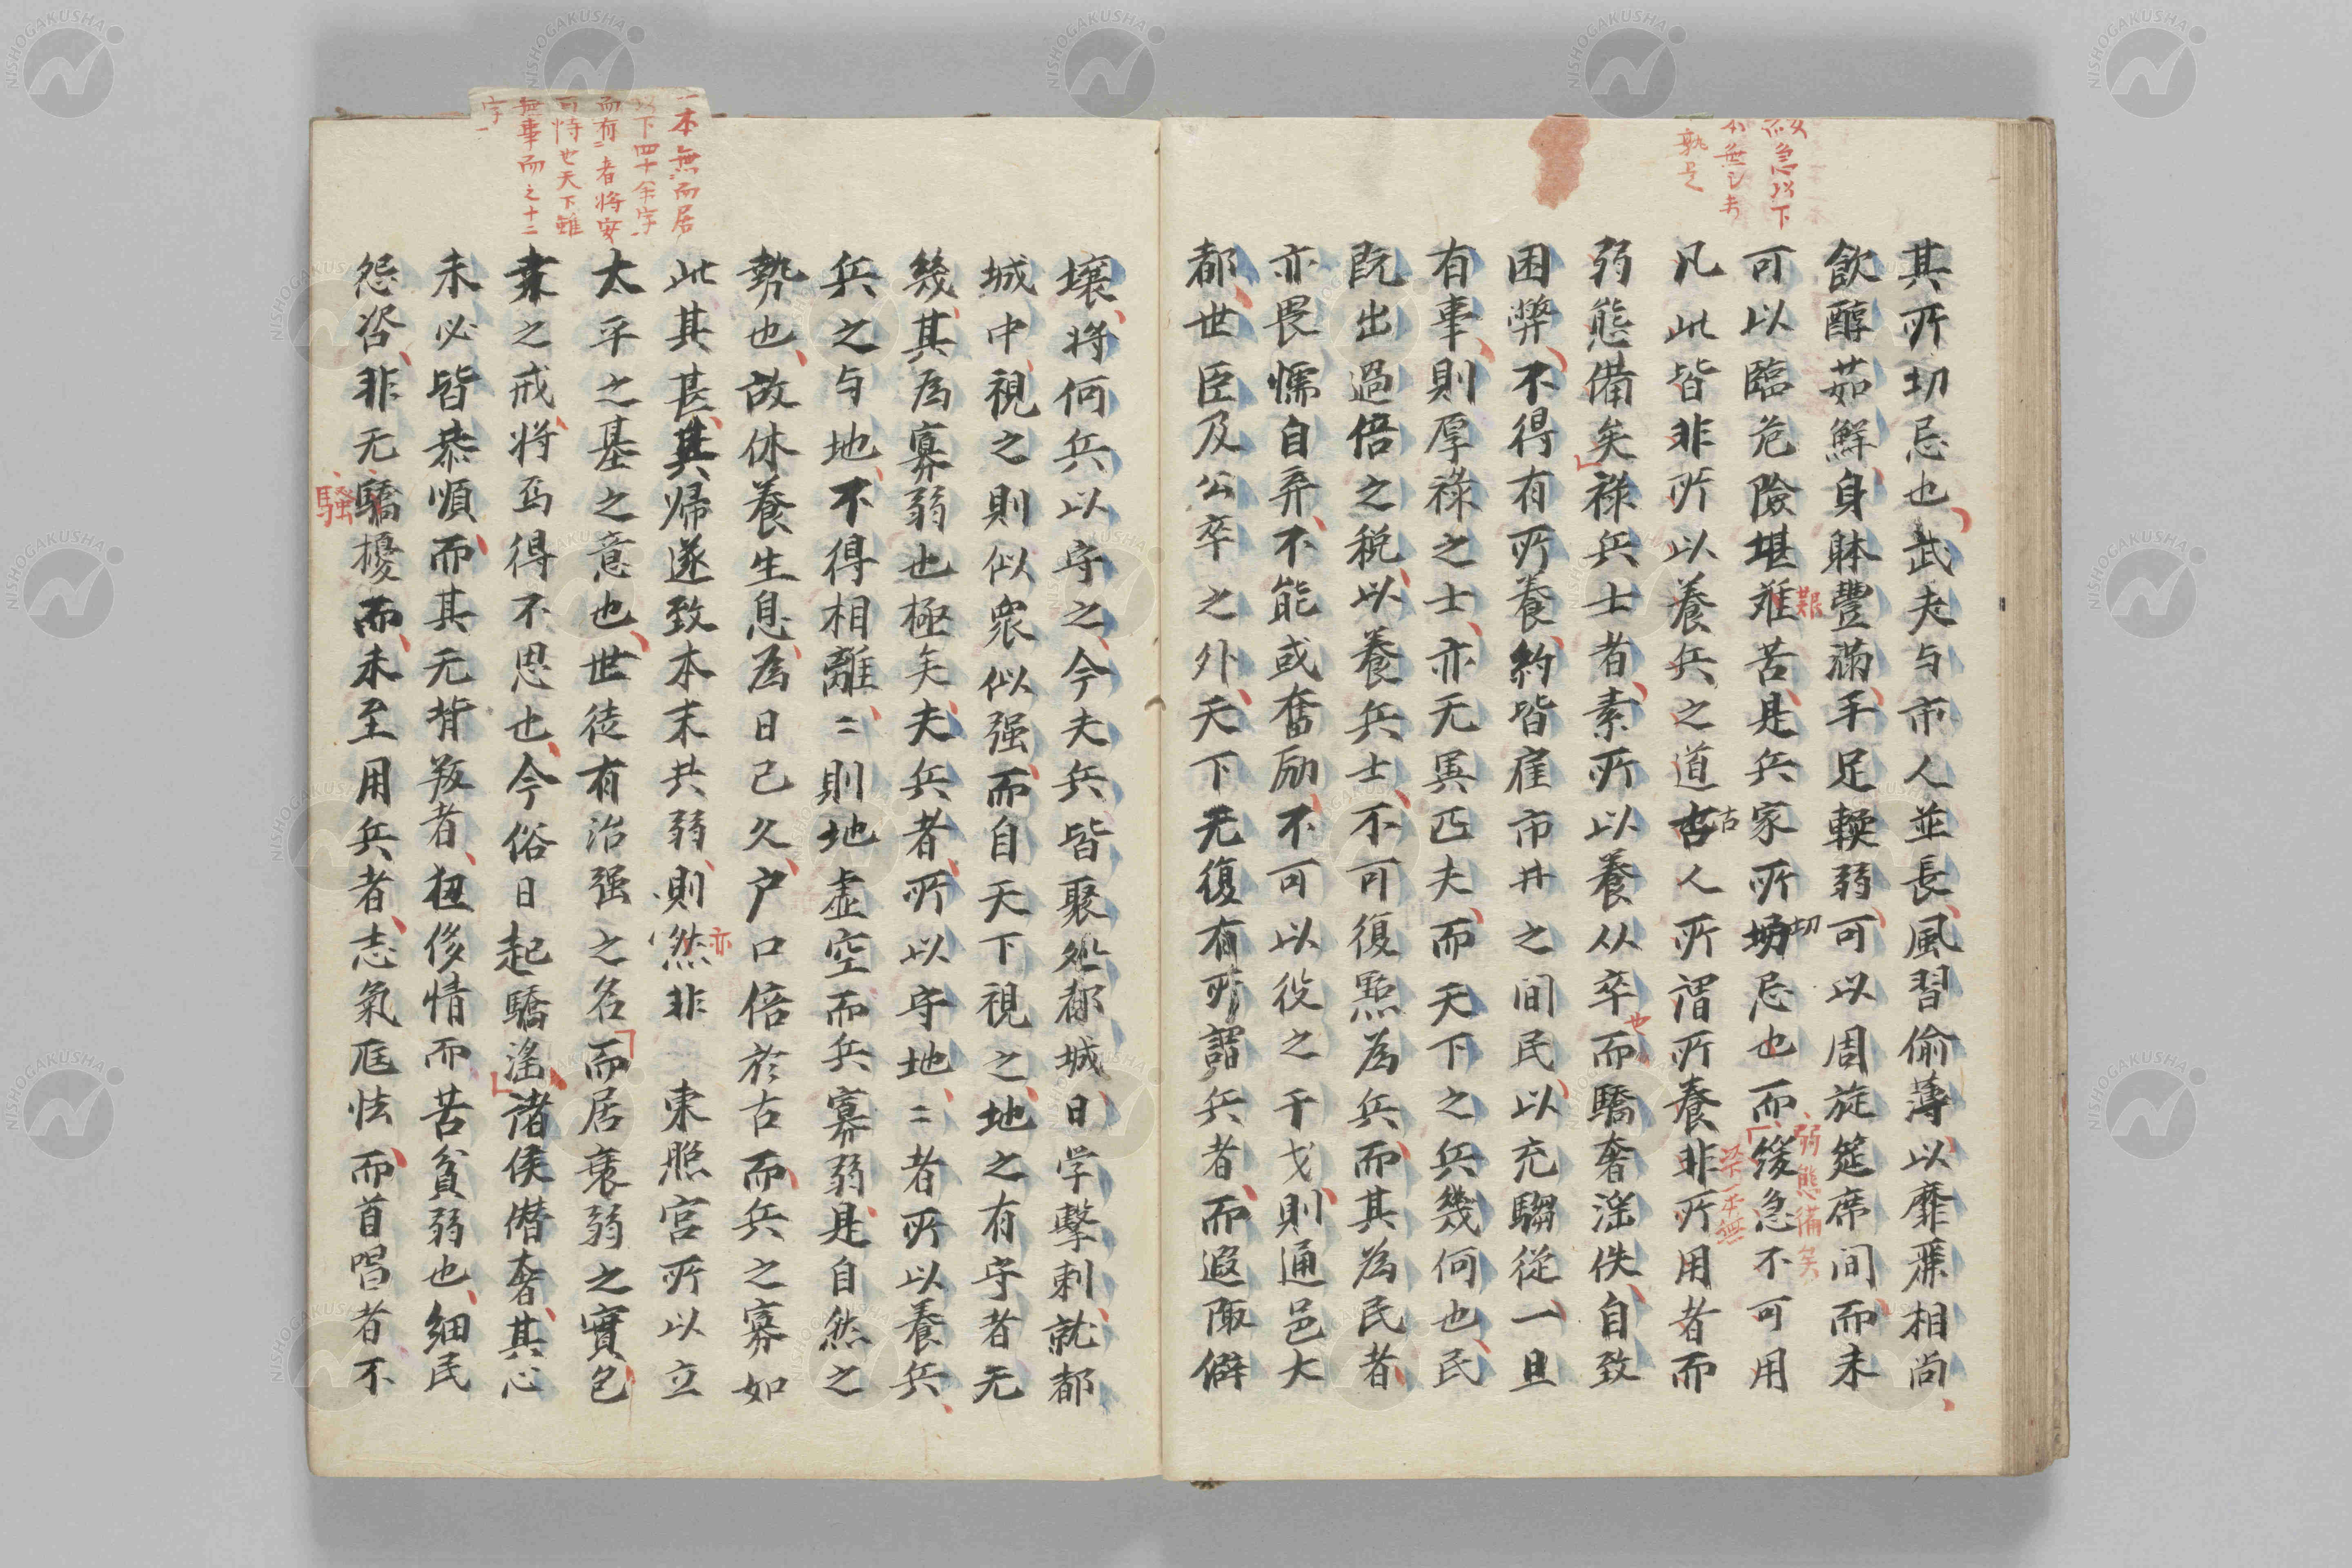 其所切忌也武夫与市人並長風習偷薄以靡麗相尚
飲醇茹鮮身躰豐滿手足輭弱可以周旋筵席間而未
可以臨危險堪难苦是兵家所切忌也而緩急不可用
艱
切
弱態備矣
凡此皆非所以養兵之道古人所謂所養非所用者而
古
一本無
弱態備矣禄兵士者素所以養从卒而驕奢淫佚自致
也
困弊不得有所養約皆雇市井之間民以充騶從一旦
有事則厚祿之士亦无異匹夫而天下之兵幾何也民
既出過倍之税以養兵士不可復點為兵而其為民者
亦畏懦自弃不能或奮励不可以役之干戈則通邑大
都世臣及公卒之外天下无復有所謂兵者而遐陬僻
急以下
無已矣
孰是
壤将何兵以守之今夫兵皆聚処都城日学擊刺就都
城中視之則似衆似强而自天下視之地之有守者无
幾其為寡弱也極矣夫兵者所以守地〻者所以養兵
兵之与地不得相離〻則地虚空而兵寡弱是自然之
勢也故休養生息為日已久户口倍於古而兵之寡如
此其甚其帰遂致本末共弱則然非 東照宮所以立
亦
太平之基之意也世徒有治强之名而居衰弱之實包
桒之戒将焉得不思也今俗日起驕滛諸侯僭奢其心
未必皆恭順而其无背叛者狃侈情而苦貧弱也細民
怨咨非无驕擾而未至用兵者志氣尫怯而首唱者不
騷
一本無而居
以下四十余字
而有者将安
可恃也天下雖
無事而之十二
字
NISHOGAKUSHA